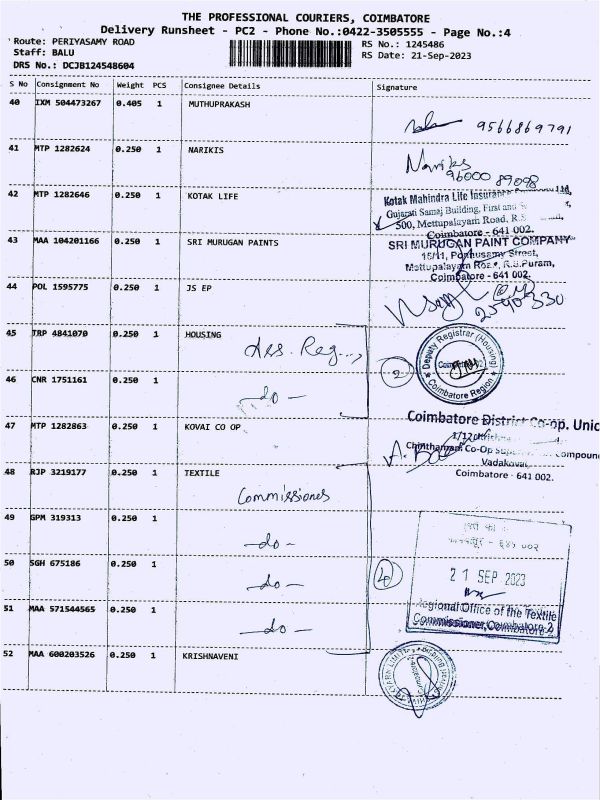 THE PROFESSIONAL COURIERS, COIMBATORE
Delivery Runsheet - PC2 - Phone No.:0422-3505555 - Page No.:4
Route: PERIYASAMY ROAD
RS No.: 1245486
Staff: BALU
RS Date: 21-Sep-2023
DRS No.: DCJB124548604
S No Consignment No Weight PCS Consignee Details Signature
40 IXM 504473267 0.405 1 MUTHUPRAKASH
9566869791
41 MTP 1282624 0.250 1 NARIKIS
Narikis
96000 89098
42 MTP 1282646 0.250 1 KOTAK LIFE
Kotak Mahindra Life Insurance Ltd,
Gujarati Samaj Building, First and
500, Mettupalayam Road, R.S
Coimbatore - 641 002.
43 MAA 104201166 0.250 1 SRI MURUGAN PAINTS
SRI MURUGAN PAINT COMPANY
15/11, Ponnusamy Street,
Mettupalayam Road, R.S.Puram,
Coimbatore - 641 002.
44 POL 1595775 0.250 1 JS EP
2590330
45 TRP 4841070 0.250 1 HOUSING
drs. Reg...,
2
Deputy Registrar (Housing)
Coimbatore Region
46 CNR 1751161 0.250 1
-do-
47 MTP 1282863 0.250 1 KOVAI CO OP
Coimbatore District Co-op. Unio
Chinthamani Co-Op Compoun
Vadakovai,
Coimbatore - 641 002.
48 RJP 3219177 0.250 1 TEXTILE
Commissiones
49 GPM 319313 0.250 1
-do-
50 SGH 675186 0.250 1
-do-
4
21 SEP 2023
51 MAA 571544565 0.250 1
-do-
Regional Office of the Textile
Commissioner, Coimbatore-2
52 MAA 600203526 0.250 1 KRISHNAVENI